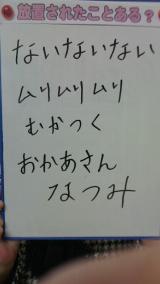 放置されたことある?
ないないない
ムリムリムリ
むかつく
おかあさん
なつみ